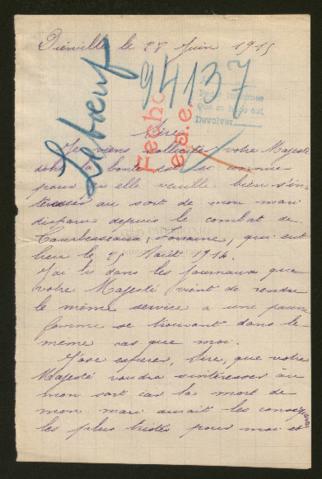 Dienville le 28 Juin 1915
94137
Leboeuf
Fecho
e.s.e.
Devolver
Sire
Je viens solliciter votre Majesté
dans la bonté
pour qu'elle veuille bien s'in-
téresser au sort de mon mari
disparu depuis le combat de
Lorraine, qui eut
lieu le 25 Août 1914.
J'ai lu dans les journaux que
votre Majesté vient de rendre
le même service a une pauvre
femme se trouvant dans le
même cas que moi.
J'ose espérer, Sire, que votre
Majesté voudra s'intéresser à
mon sort car la mort de
mon mari aurait les conséquences
les plus tristes pour moi et